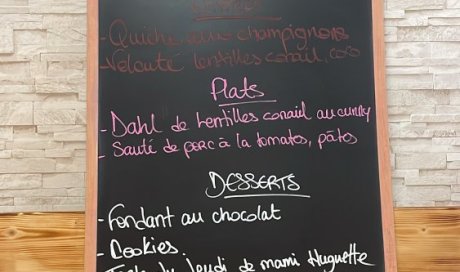 - Quiche aux champignons
- Velouté lentilles corail, coco
Plats
- Dahl de lentilles corail au curry
- Sauté de porc à la tomates, pâtes
DESSERTS
- Fondant au chocolat
- Cookies
du Jeudi de mami Huguette